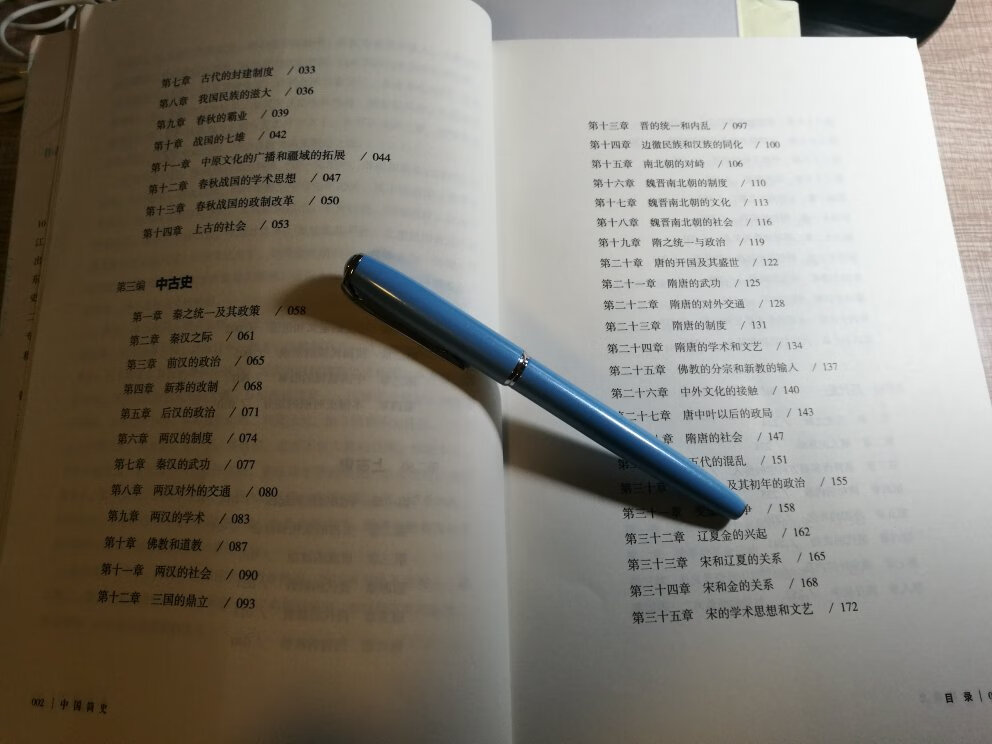 第七章 古代的封建制度 / 033
第八章 我国民族的滋大 / 036
第九章 春秋的霸业 / 039
第十章 战国的七雄 / 042
第十一章 中原文化的广播和疆域的拓展 / 044
第十二章 春秋战国的学术思想 / 047
第十三章 春秋战国的政制改革 / 050
第十四章 上古的社会 / 053
第三编 中古史
第一章 秦之统一及其政策 / 058
第二章 秦汉之际 / 061
第三章 前汉的政治 / 065
第四章 新莽的改制 / 068
第五章 后汉的政治 / 071
第六章 两汉的制度 / 074
第七章 秦汉的武功 / 077
第八章 两汉对外的交通 / 080
第九章 两汉的学术 / 083
第十章 佛教和道教 / 087
第十一章 两汉的社会 / 090
第十二章 三国的鼎立 / 093
002 | 中国简史
第十三章 晋的统一和内乱 / 097
第十四章 边徼民族和汉族的同化 / 100
第十五章 南北朝的对峙 / 106
第十六章 魏晋南北朝的制度 / 110
第十七章 魏晋南北朝的文化 / 113
第十八章 魏晋南北朝的社会 / 116
第十九章 隋之统一与政治 / 119
第二十章 唐的开国及其盛世 / 122
第二十一章 隋唐的武功 / 125
第二十二章 隋唐的对外交通 / 128
第二十三章 隋唐的制度 / 131
第二十四章 隋唐的学术和文艺 / 134
第二十五章 佛教的分宗和新教的输入 / 137
第二十六章 中外文化的接触 / 140
第二十七章 唐中叶以后的政局 / 143
章 隋唐的社会 / 147
五代的混乱 / 151
第三十章 及其初年的政治 / 155
第三十一章 / 158
第三十二章 辽夏金的兴起 / 162
第三十三章 宋和辽夏的关系 / 165
第三十四章 宋和金的关系 / 168
第三十五章 宋的学术思想和文艺 / 172
目录 |